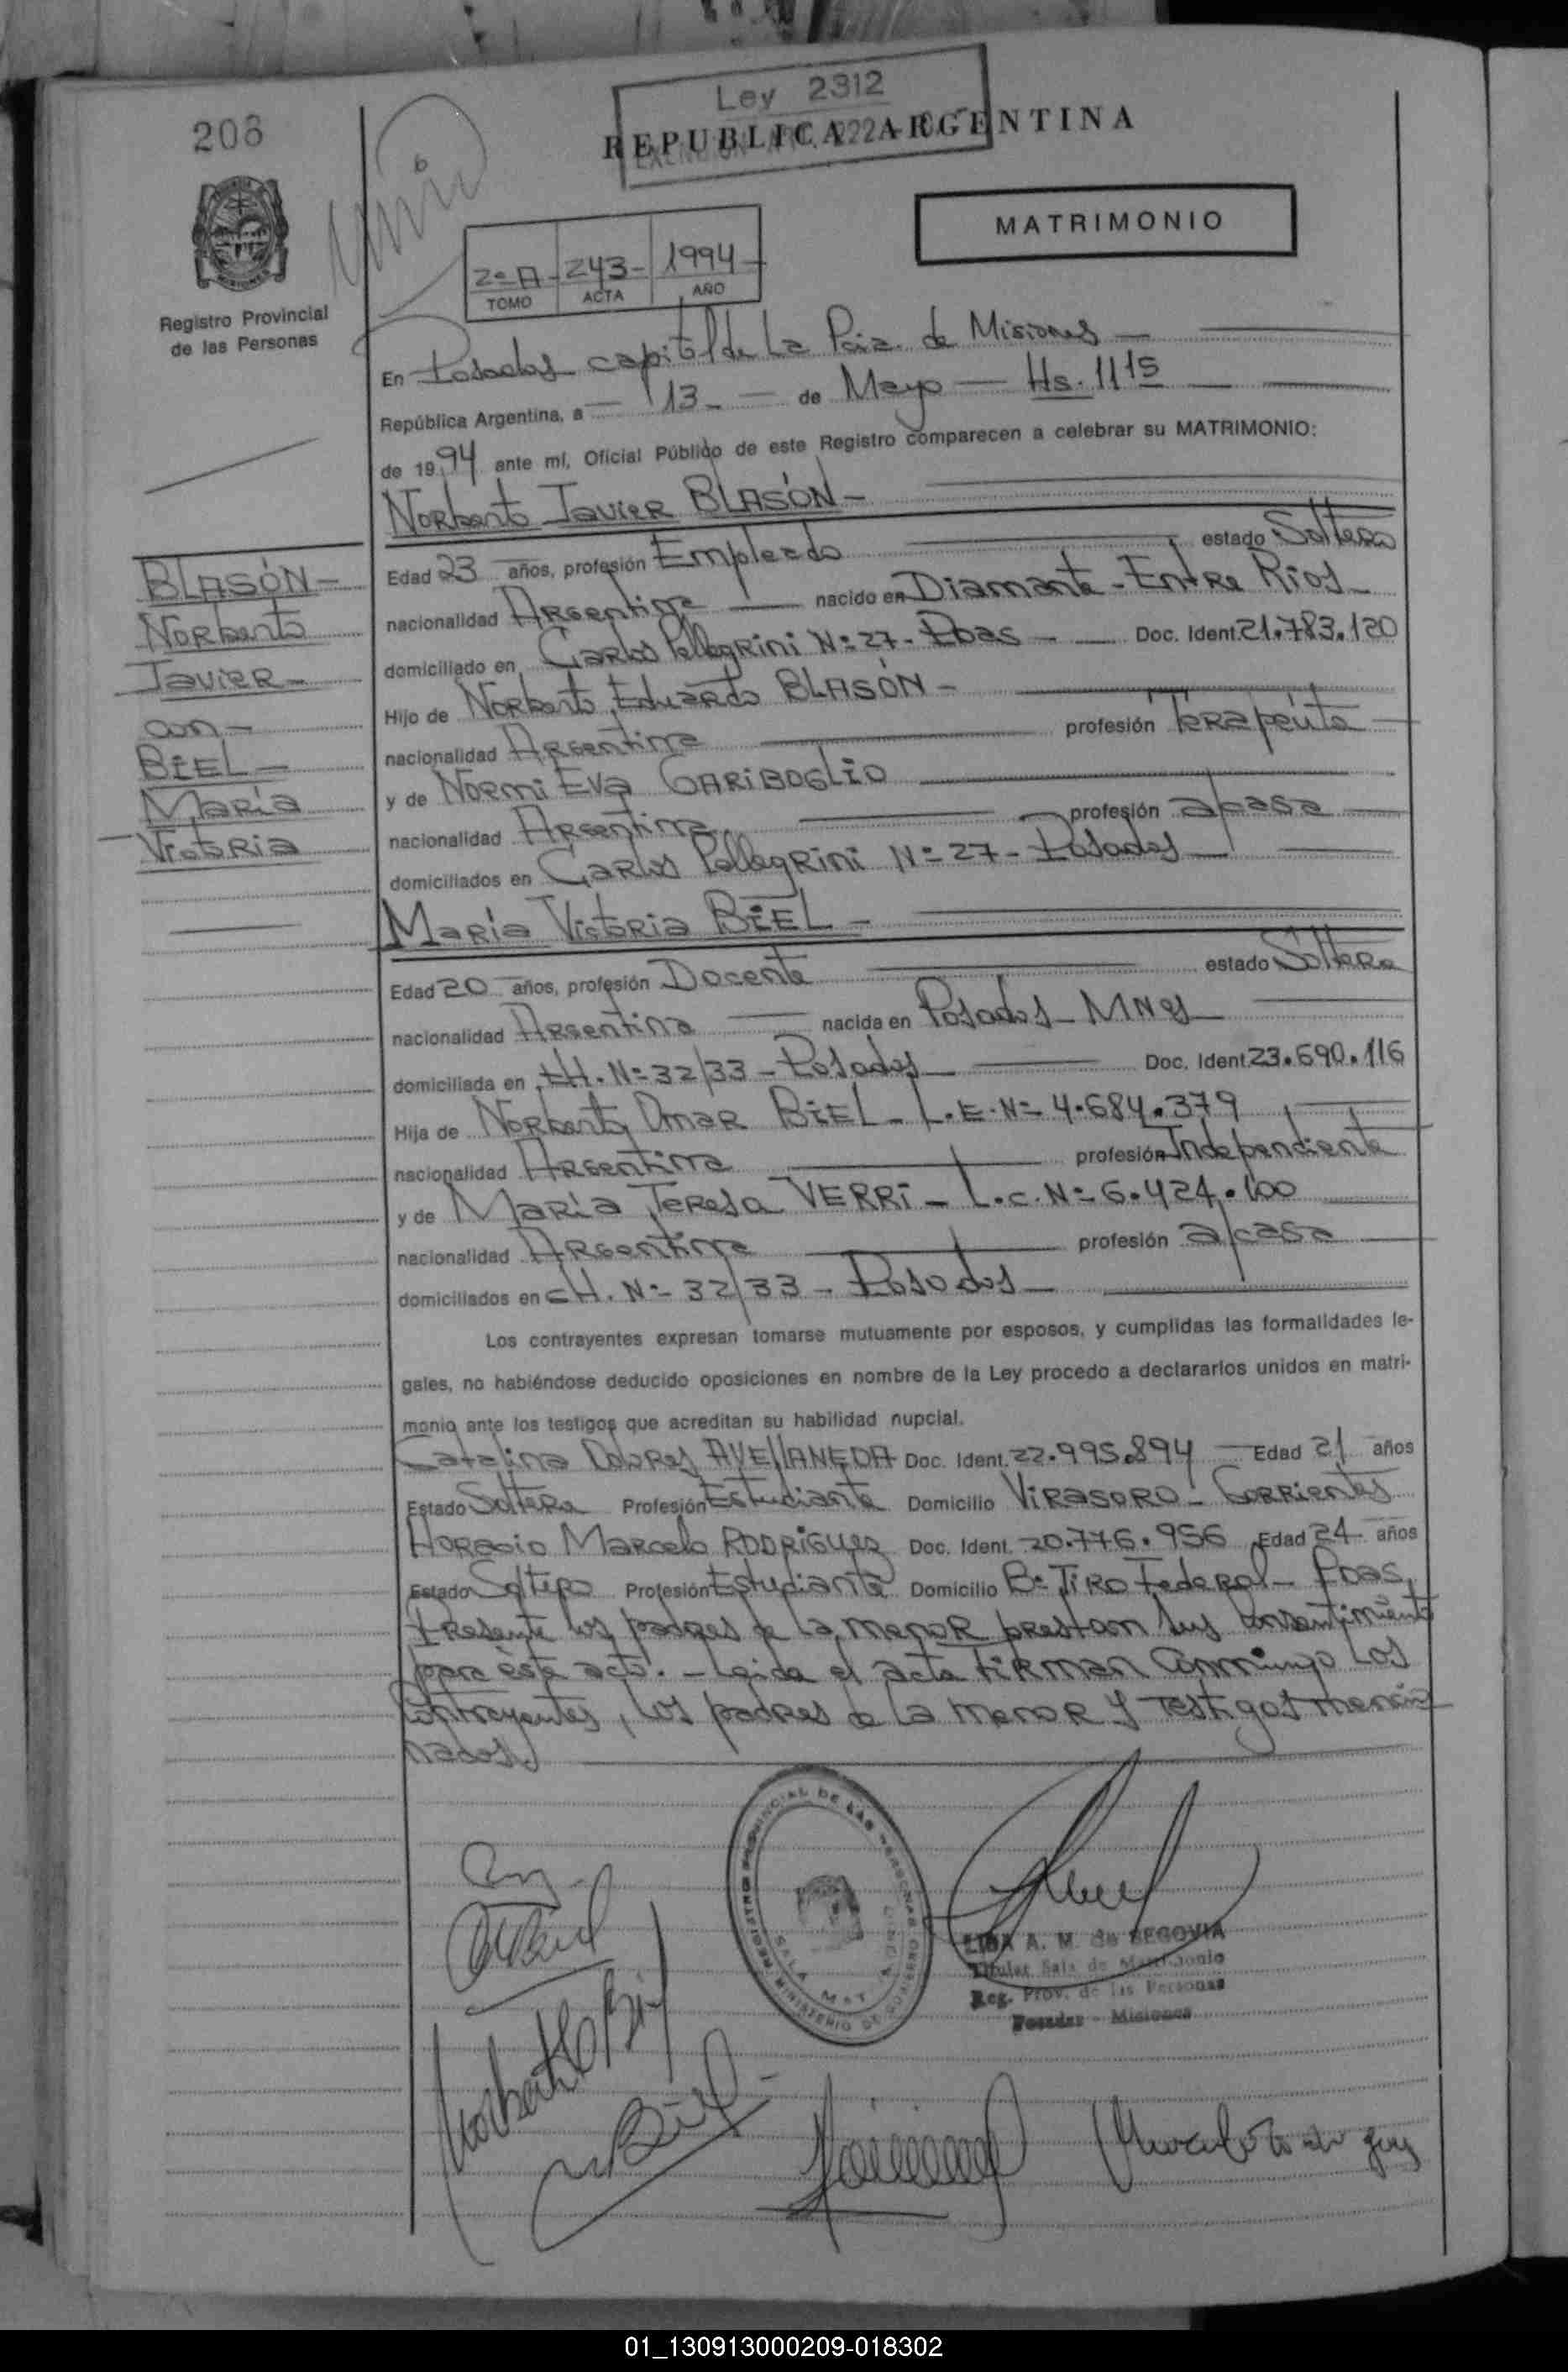 Ley 2312
206
REPUBLICA ARGENTINA
MATRIMONIO
2º A - 243 - 1994 -
TOMO ACTA AÑO
Registro Provincial
de las Personas
En Posadas capital de La Pcia. de Misiones —
República Argentina, a — 13 - — de Mayo — Hs. 11 15 —
de 1994 ante mí, Oficial Público de este Registro comparecen a celebrar su MATRIMONIO:
Norberto Javier BLASÓN -
Edad 23 años, profesión Empleado estado Soltero
nacionalidad Argentina — nacido en Diamante - Entre Rios -
domiciliado en Carlos Pellegrini Nº 27 - Pdas - — Doc. Ident. 21.783.120
Hijo de Norberto Eduardo BLASÓN -
nacionalidad Argentina — profesión Terapéuta
y de Normi Eva GARiBOGLIO
nacionalidad Argentina — profesión a/casa
domiciliados en Carlos Pellegrini Nº 27 - Posadas —
BLASÓN -
Norberto
Javier -
con -
BIEL -
María
Victoria
María Victoria BIEL -
Edad 20 años, profesión Docente estado Soltera
nacionalidad Argentina — nacida en Posadas - MNes —
domiciliada en CH. Nº 32/33 - Posadas — Doc. Ident. 23.690.116
Hija de Norberto Omar BIEL - L.E. Nº 4.684.379
nacionalidad Argentina — profesión Independiente
y de María Teresa VERRI - L.C. Nº 6.424.100
nacionalidad Argentina — profesión a/casa
domiciliados en CH. Nº 32/33 - Posadas —
Los contrayentes expresan tomarse mutuamente por esposos, y cumplidas las formalidades le-
gales, no habiéndose deducido oposiciones en nombre de la Ley procedo a declararlos unidos en matri-
monio ante los testigos que acreditan su habilidad nupcial.
Catalina Dolores AVELLANEDA Doc. Ident. 22.995.894 — Edad 21 años
Estado Soltera Profesión Estudiante Domicilio Virasoro - Corrientes
Horacio Marcelo RODRIGUEZ Doc. Ident. 20.776.956 Edad 24 años
Estado Soltero Profesión Estudiante Domicilio Bº Tiro Federal - Pdas
Presente los padres de la menor prestan sus consentimiento
para éste acto. - Leida el acta firman conmingo Los
contrayentes, los padres de La menor y Testigos mencio
nados
REGISTRO PROVINCIAL DE LAS PERSONAS
MINISTERIO DE GOBIERNO
LIDA A. M. de SEGOVIA
Titular Sala de Matrimonio
Reg. Prov. de las Personas
Posadas - Misiones
01_130913000209-018302